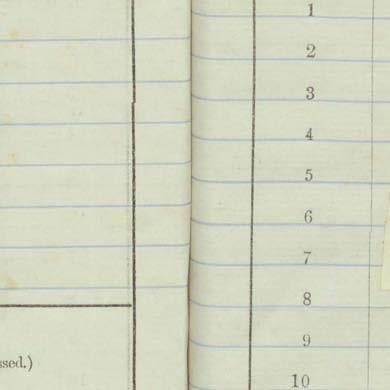 ssed.)
1
2
3
4
5
6
7
8
9
10